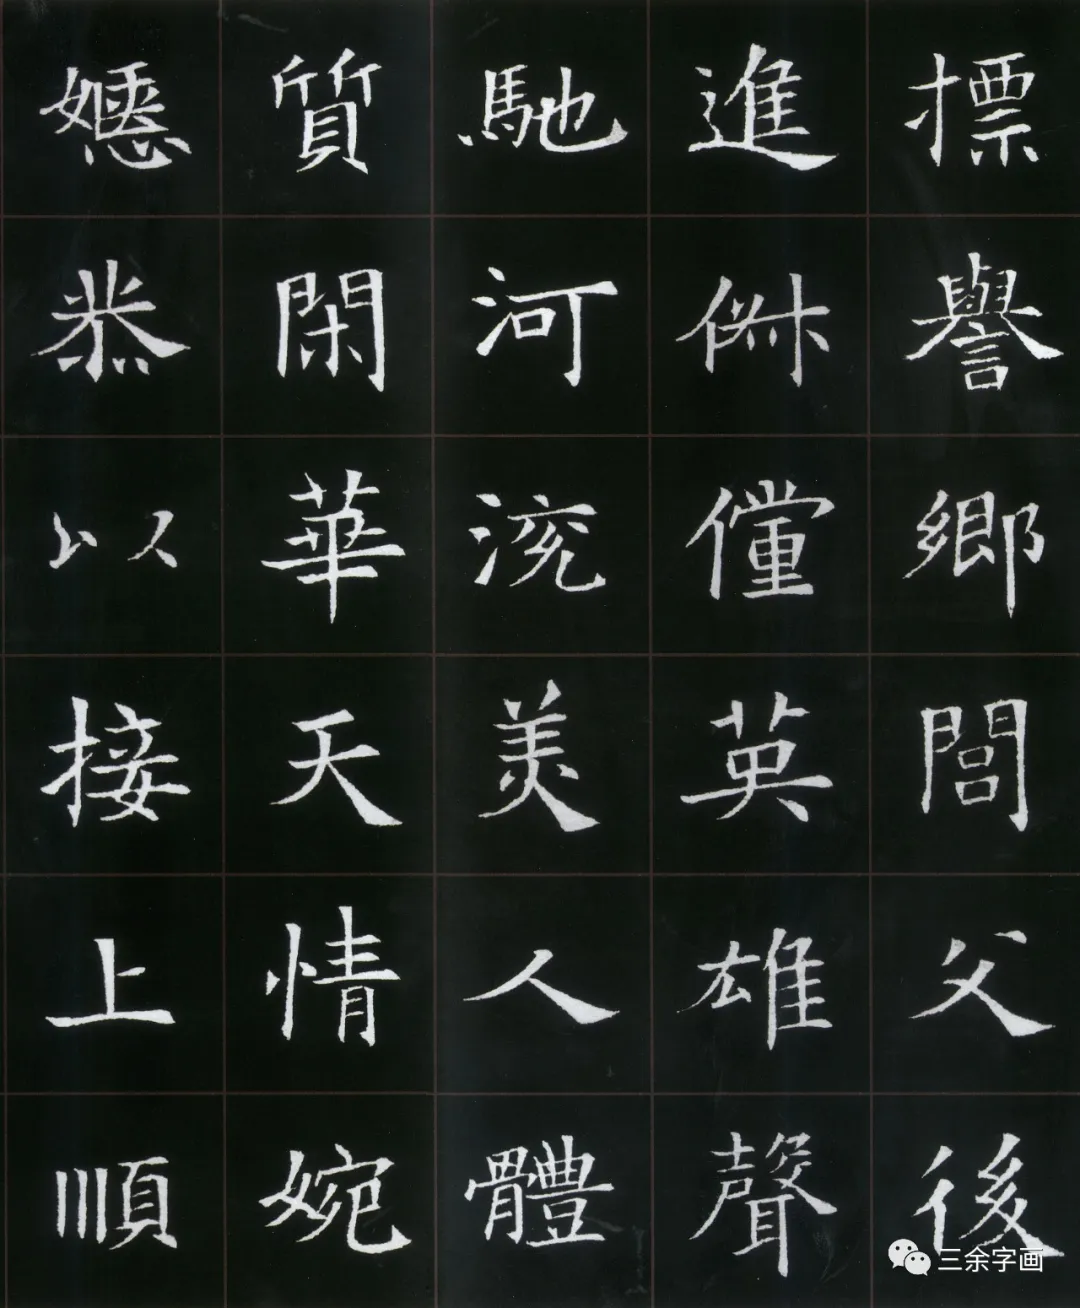 摽譽鄉閭父後
進俶儻英雄聲
馳河渷美人體
質閑華天情婉
嫕恭以接上順
三余字画